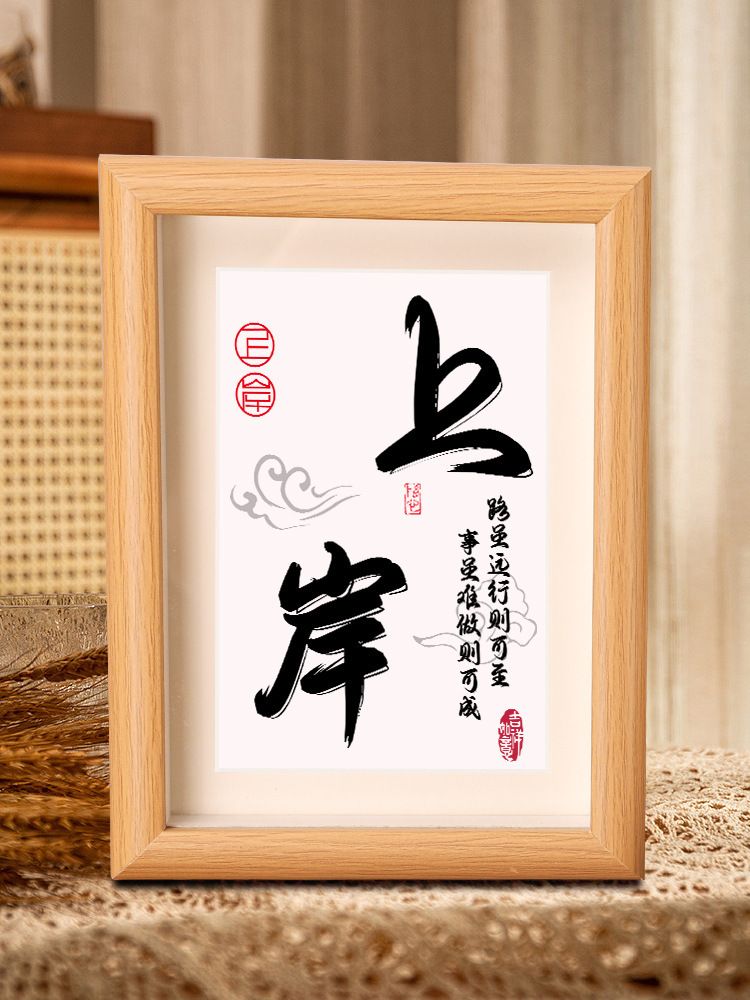 上
岸
路虽远行则可至
事虽难做则可成
上
岸
吉祥
如意